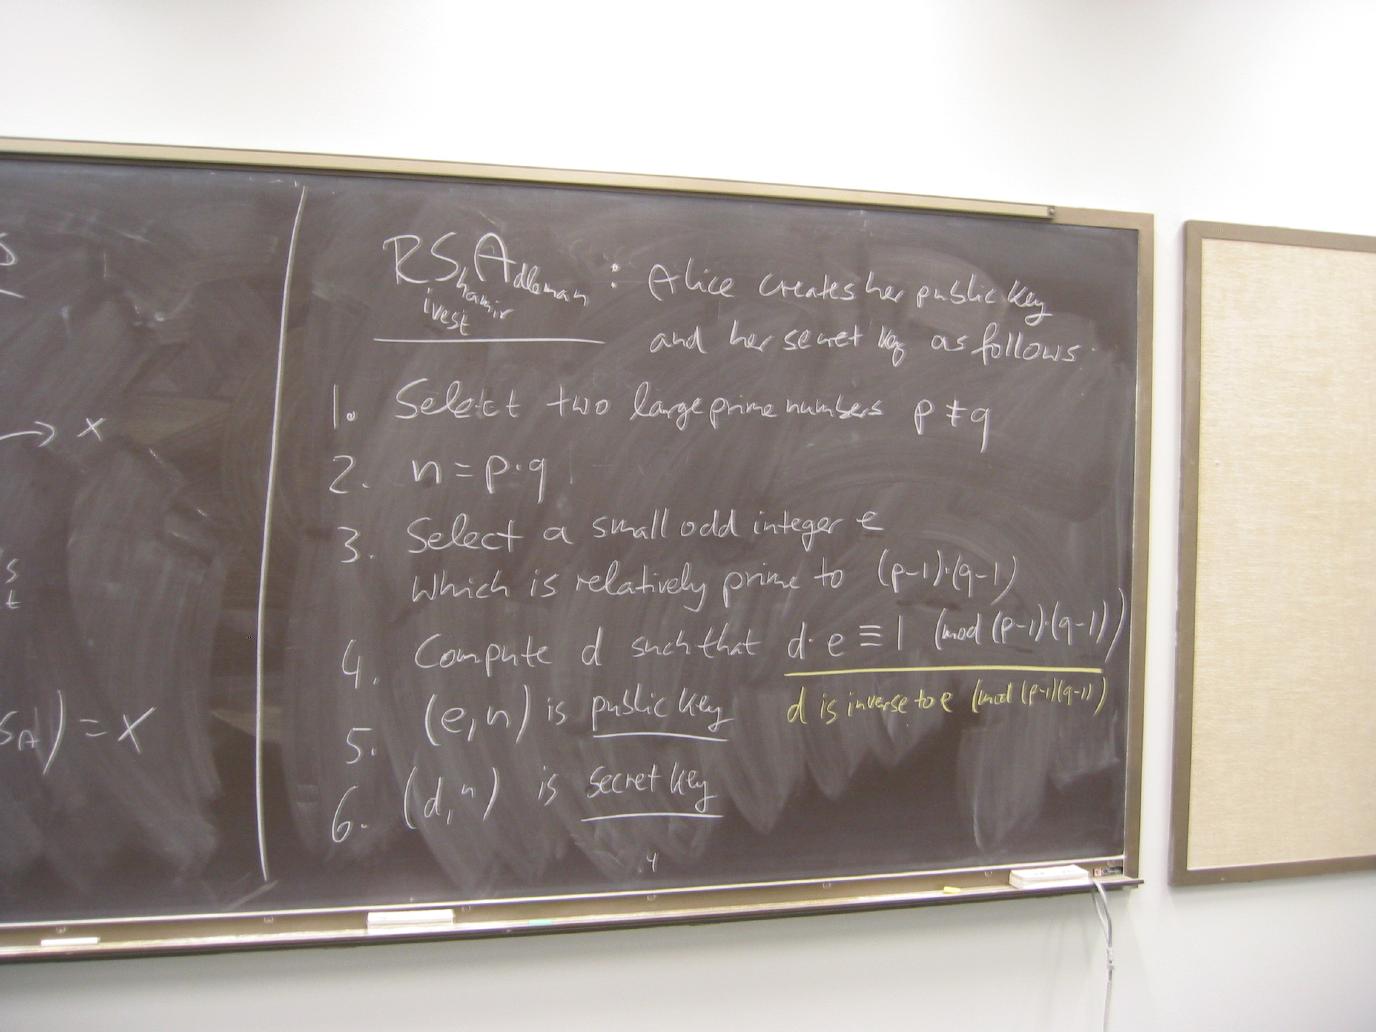 S
→ x
s
t
S_A) = x
RShamir Adleman : Alice creates her public key
ivest
and her secret key as follows.
1. Select two large prime numbers p ≠ q
2. n = p·q
3. Select a small odd integer e
which is relatively prime to (p-1)·(q-1)
4. Compute d such that d·e ≡ 1 (mod (p-1)·(q-1))
d is inverse to e (mod (p-1)(q-1))
5. (e,n) is public key
6. (d,n) is secret key
4